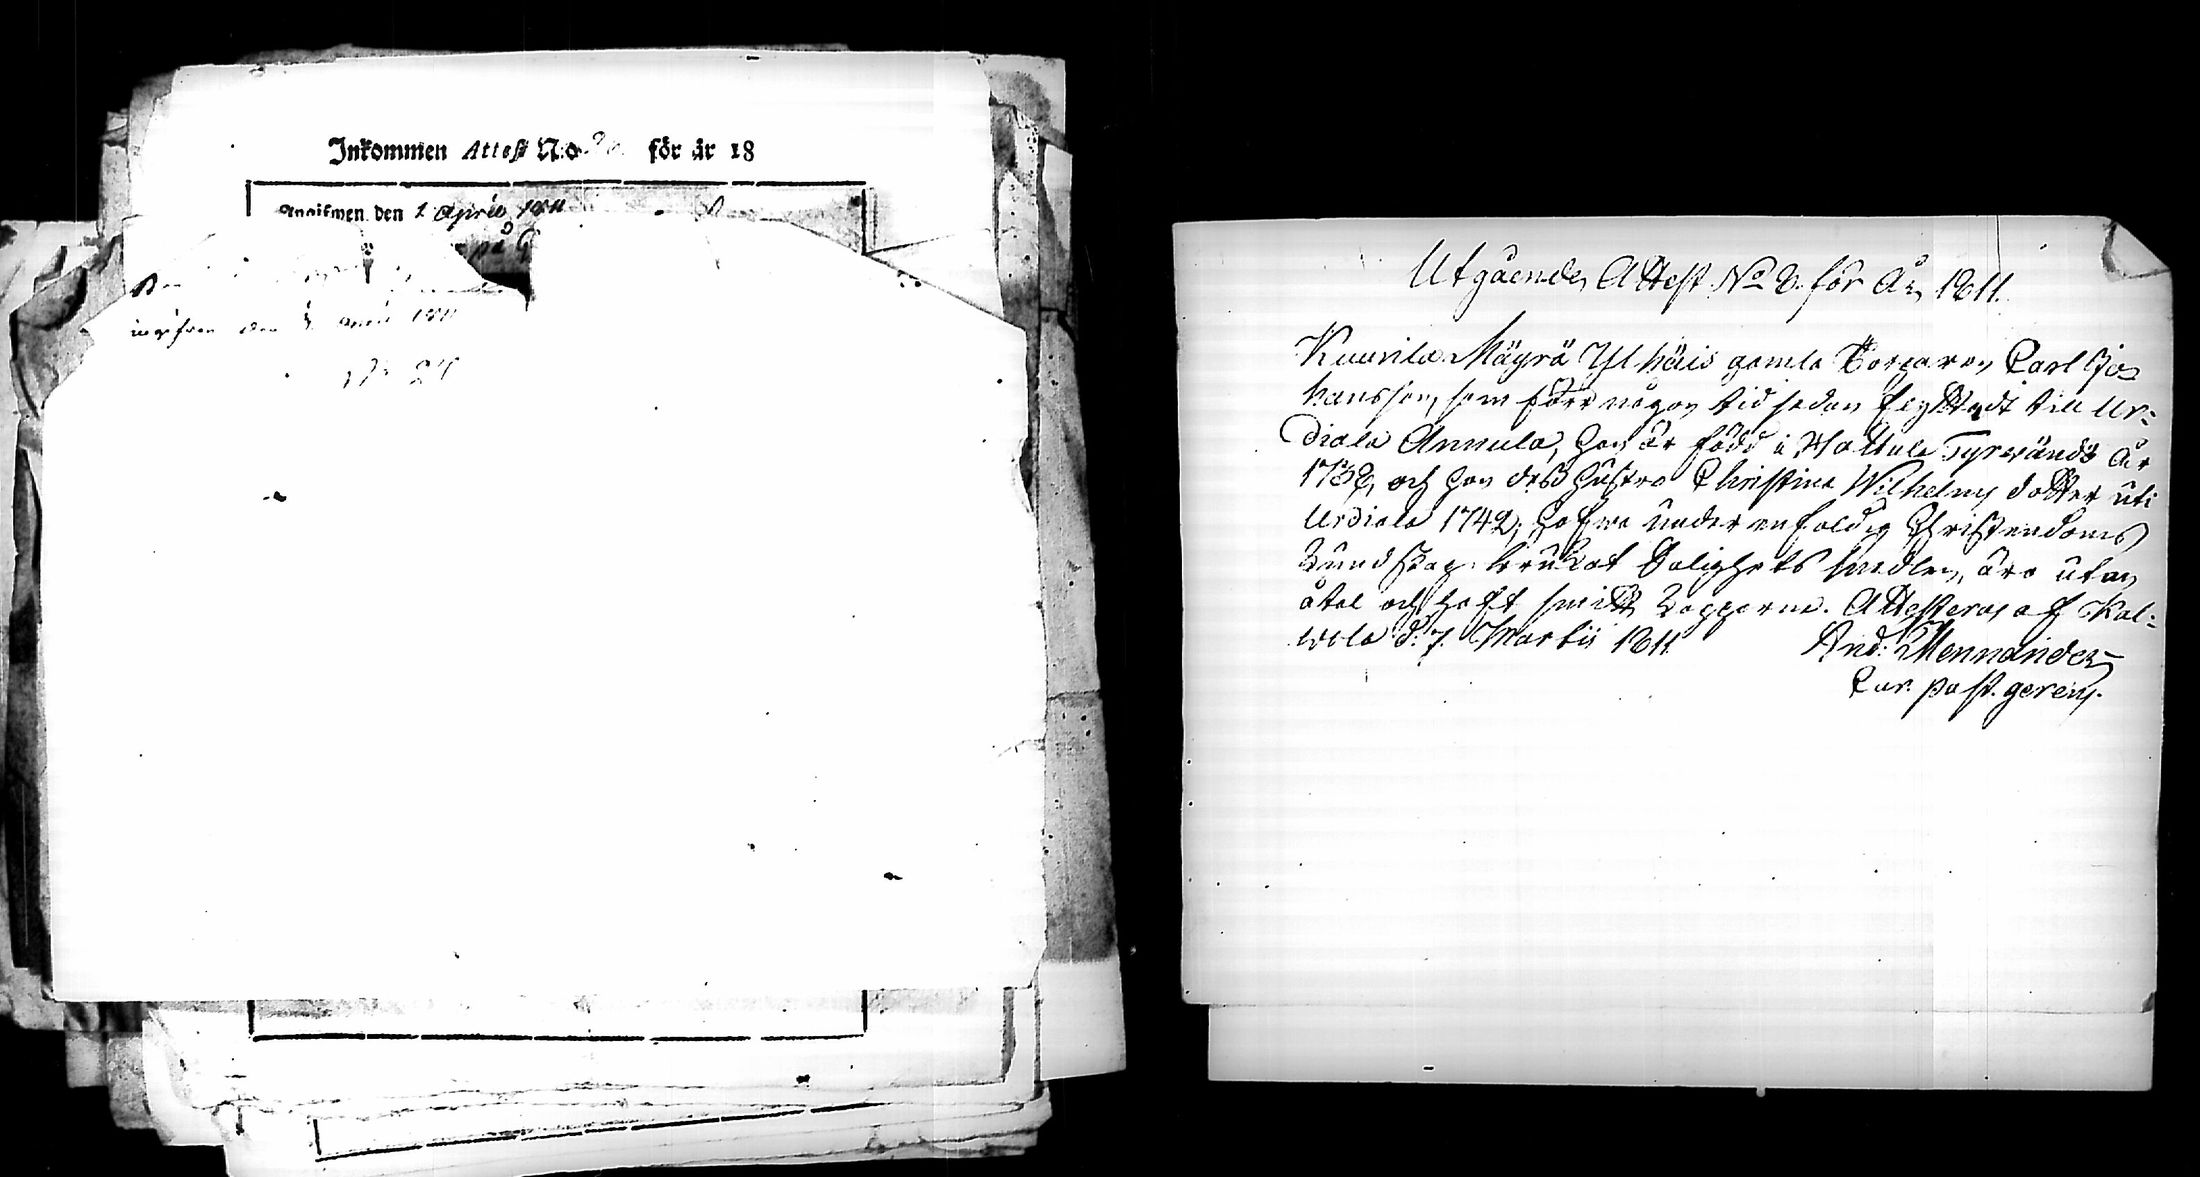 Inkommen Attest N:o 20. för år 18
Angifwen den 1 April 1811
på
den 1811
No 24
Utgående Attest No 8. för År 1811.
Kuurila Mäyrä Ylhäis gamla Torparen Carl Jo=
hansson, som förr någon tid sedan flyttadt till Ur=
diala Annula, han är född i Hattula Tyrwändö År
1738, och hon dess hustro Christina Wilhelms dotter uti
Urdiala 1742, hafwa under enfaldig Christendoms
kundskap brukat Salighets medlen, äro utan
åtal och haft smitt kopporne. Attesteras af Kal=
wola d: 7. Martii 1811.
And: Mennander
Cur. past. gerens.